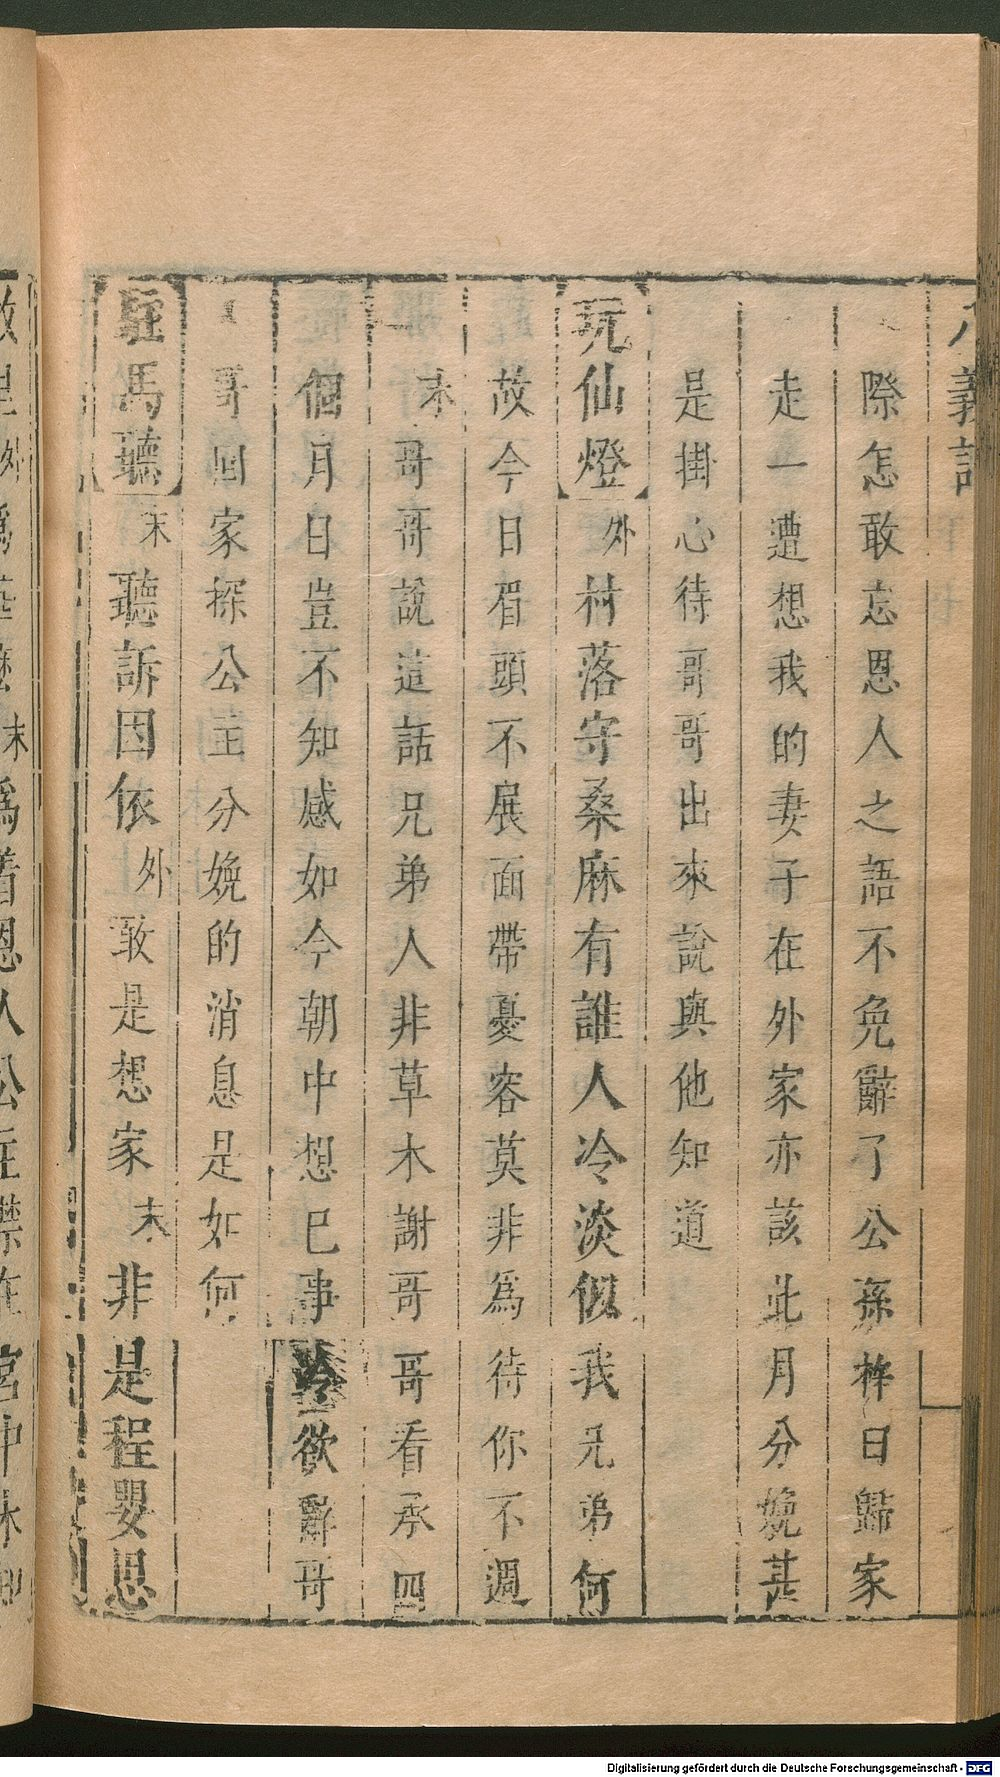 八義記
際怎敢忘恩人之語不免辭了公孫杵臼歸家
走一遭想我的妻子在外家亦該此月分娩甚
是掛心待哥哥出來說與他知道
玩仙燈 外 村落守桑麻有誰人冷淡似我兄弟何
故今日眉頭不展面帶憂容莫非為待你不週
末 哥哥說這話兄弟人非草木謝哥哥看承四
個月日豈不知感如今朝中想已事冷欲辭哥
哥回家探公主分娩的消息是如何
駐馬聽 末 聽訴因依 外 敢是想家 末 非是程嬰思
故里 外 為甚麼 末 為着恩人公主禁在宮中
Digitalisierung gefördert durch die Deutsche Forschungsgemeinschaft - DFG